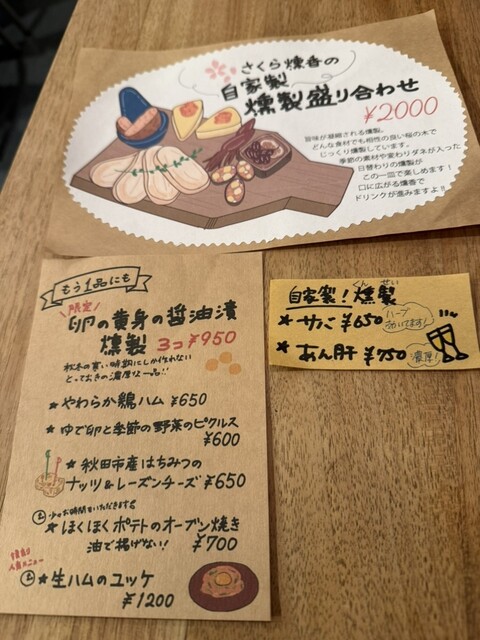 さくら燻香の
自家製
燻製盛り合わせ
¥2000
旨味が凝縮される燻製。
どんな食材でも相性の良い桜の木で
じっくり燻製しています。
季節の素材や変わりダネが入った
日替わりの燻製が
この一皿で楽しめます!
口に広がる燻香で
ドリンクが進みますよ!!
もう1品にも
限定
卵の黄身の醤油漬
燻製 3コ¥950
秋冬の寒い時期にしか作れない
とっておきの濃厚な一品!!
★やわらか鶏ハム ¥650
★ゆで卵と季節の野菜のピクルス
¥600
★秋田市産はちみつの
ナッツ&レーズンチーズ ¥650
少々お時間をいただきます
★ほくほくポテトのオーブン焼き
油で揚げない! ¥700
人気メニュー
★生ハムのユッケ
¥1200
くんせい
自家製!燻製
★サバ ¥650
ハーブ
効いてます!
★あん肝 ¥750
濃厚!